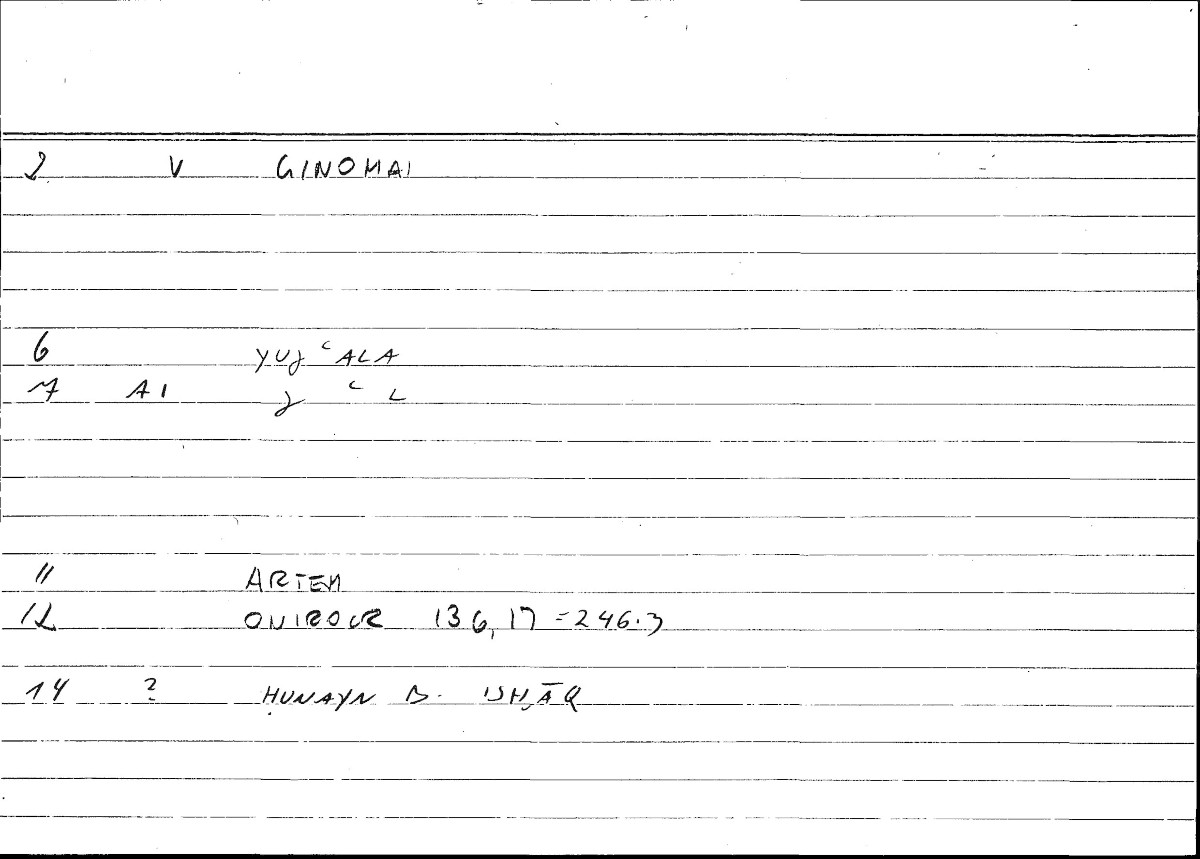 2 V GINOMAI
6 YUJ ʿALA
7 A1 J ʿ L
11 ARTEM
12 ONIROCR 136,17 =246.3
14 ? ḤUNAYN B. ISḤĀQ